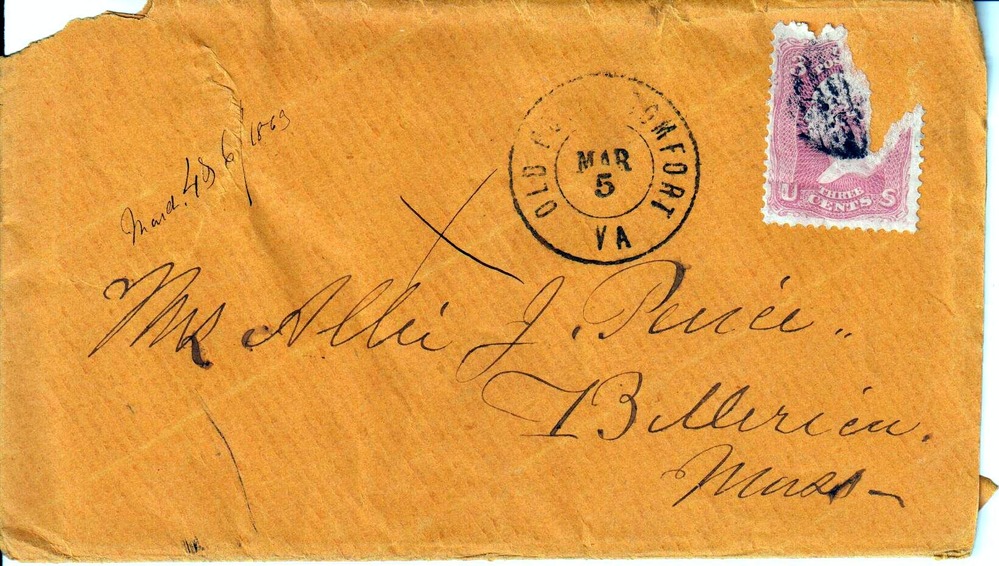 March 4th 1863
OLD POINT COMFORT
MAR
5
VA
U THREE CENTS S
Mrs Allie J. Peirce..
Billerica.
Mass